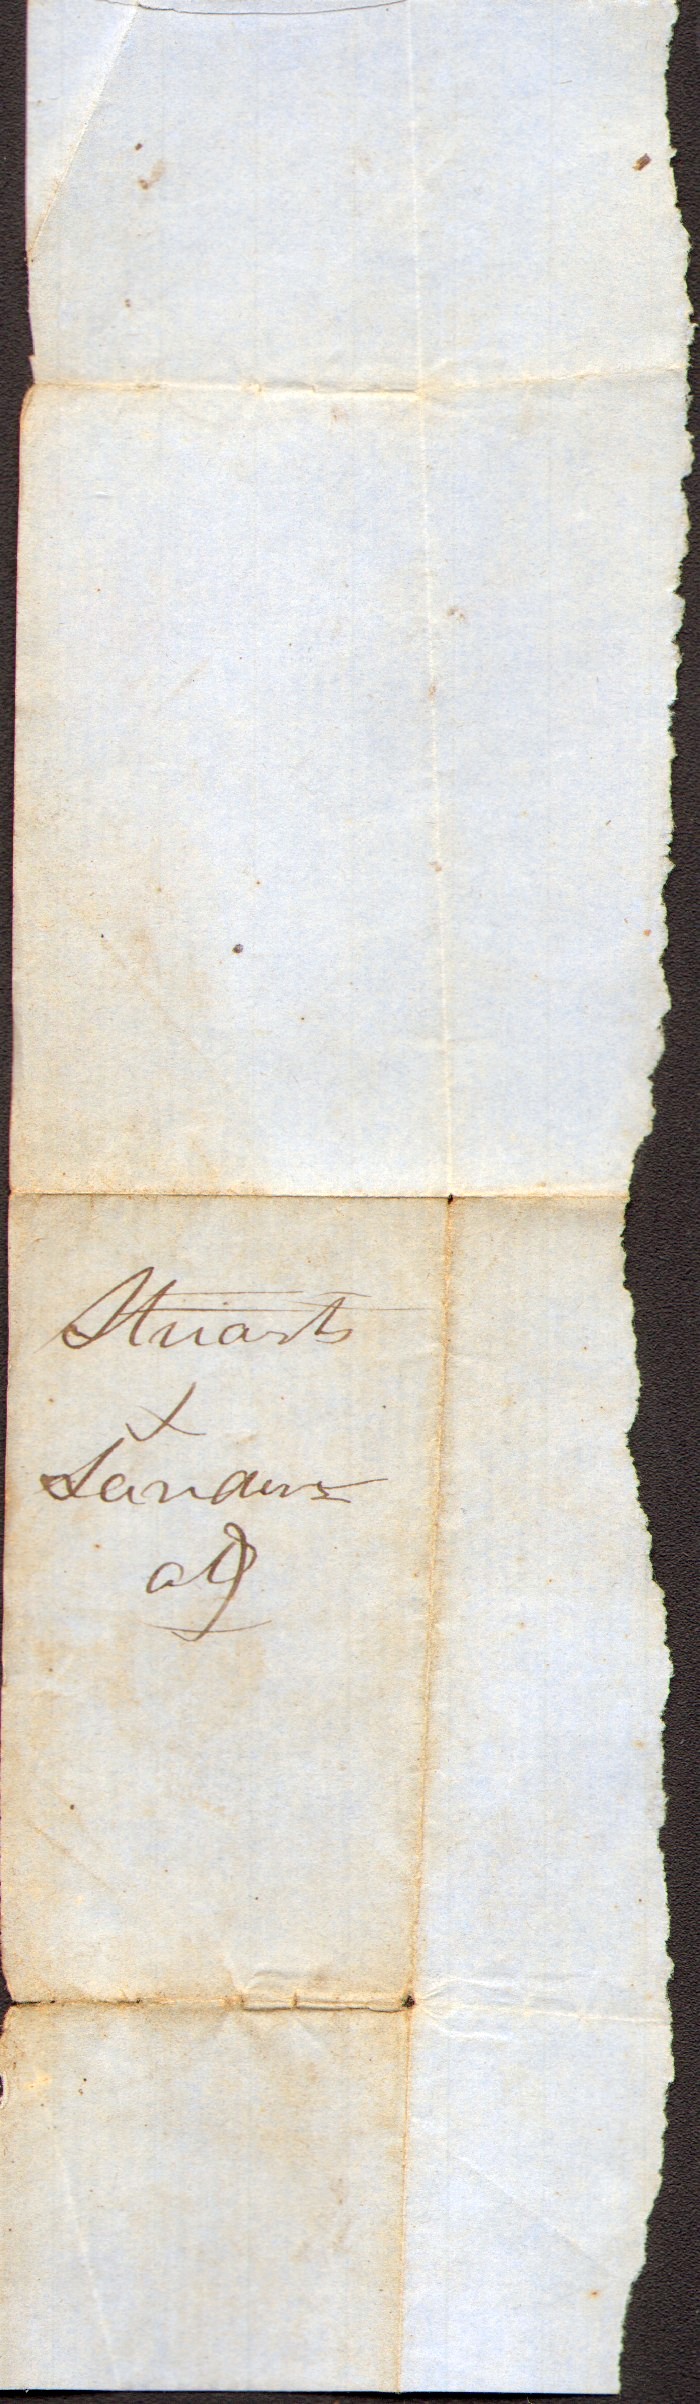 Stuarts
&
Sanders